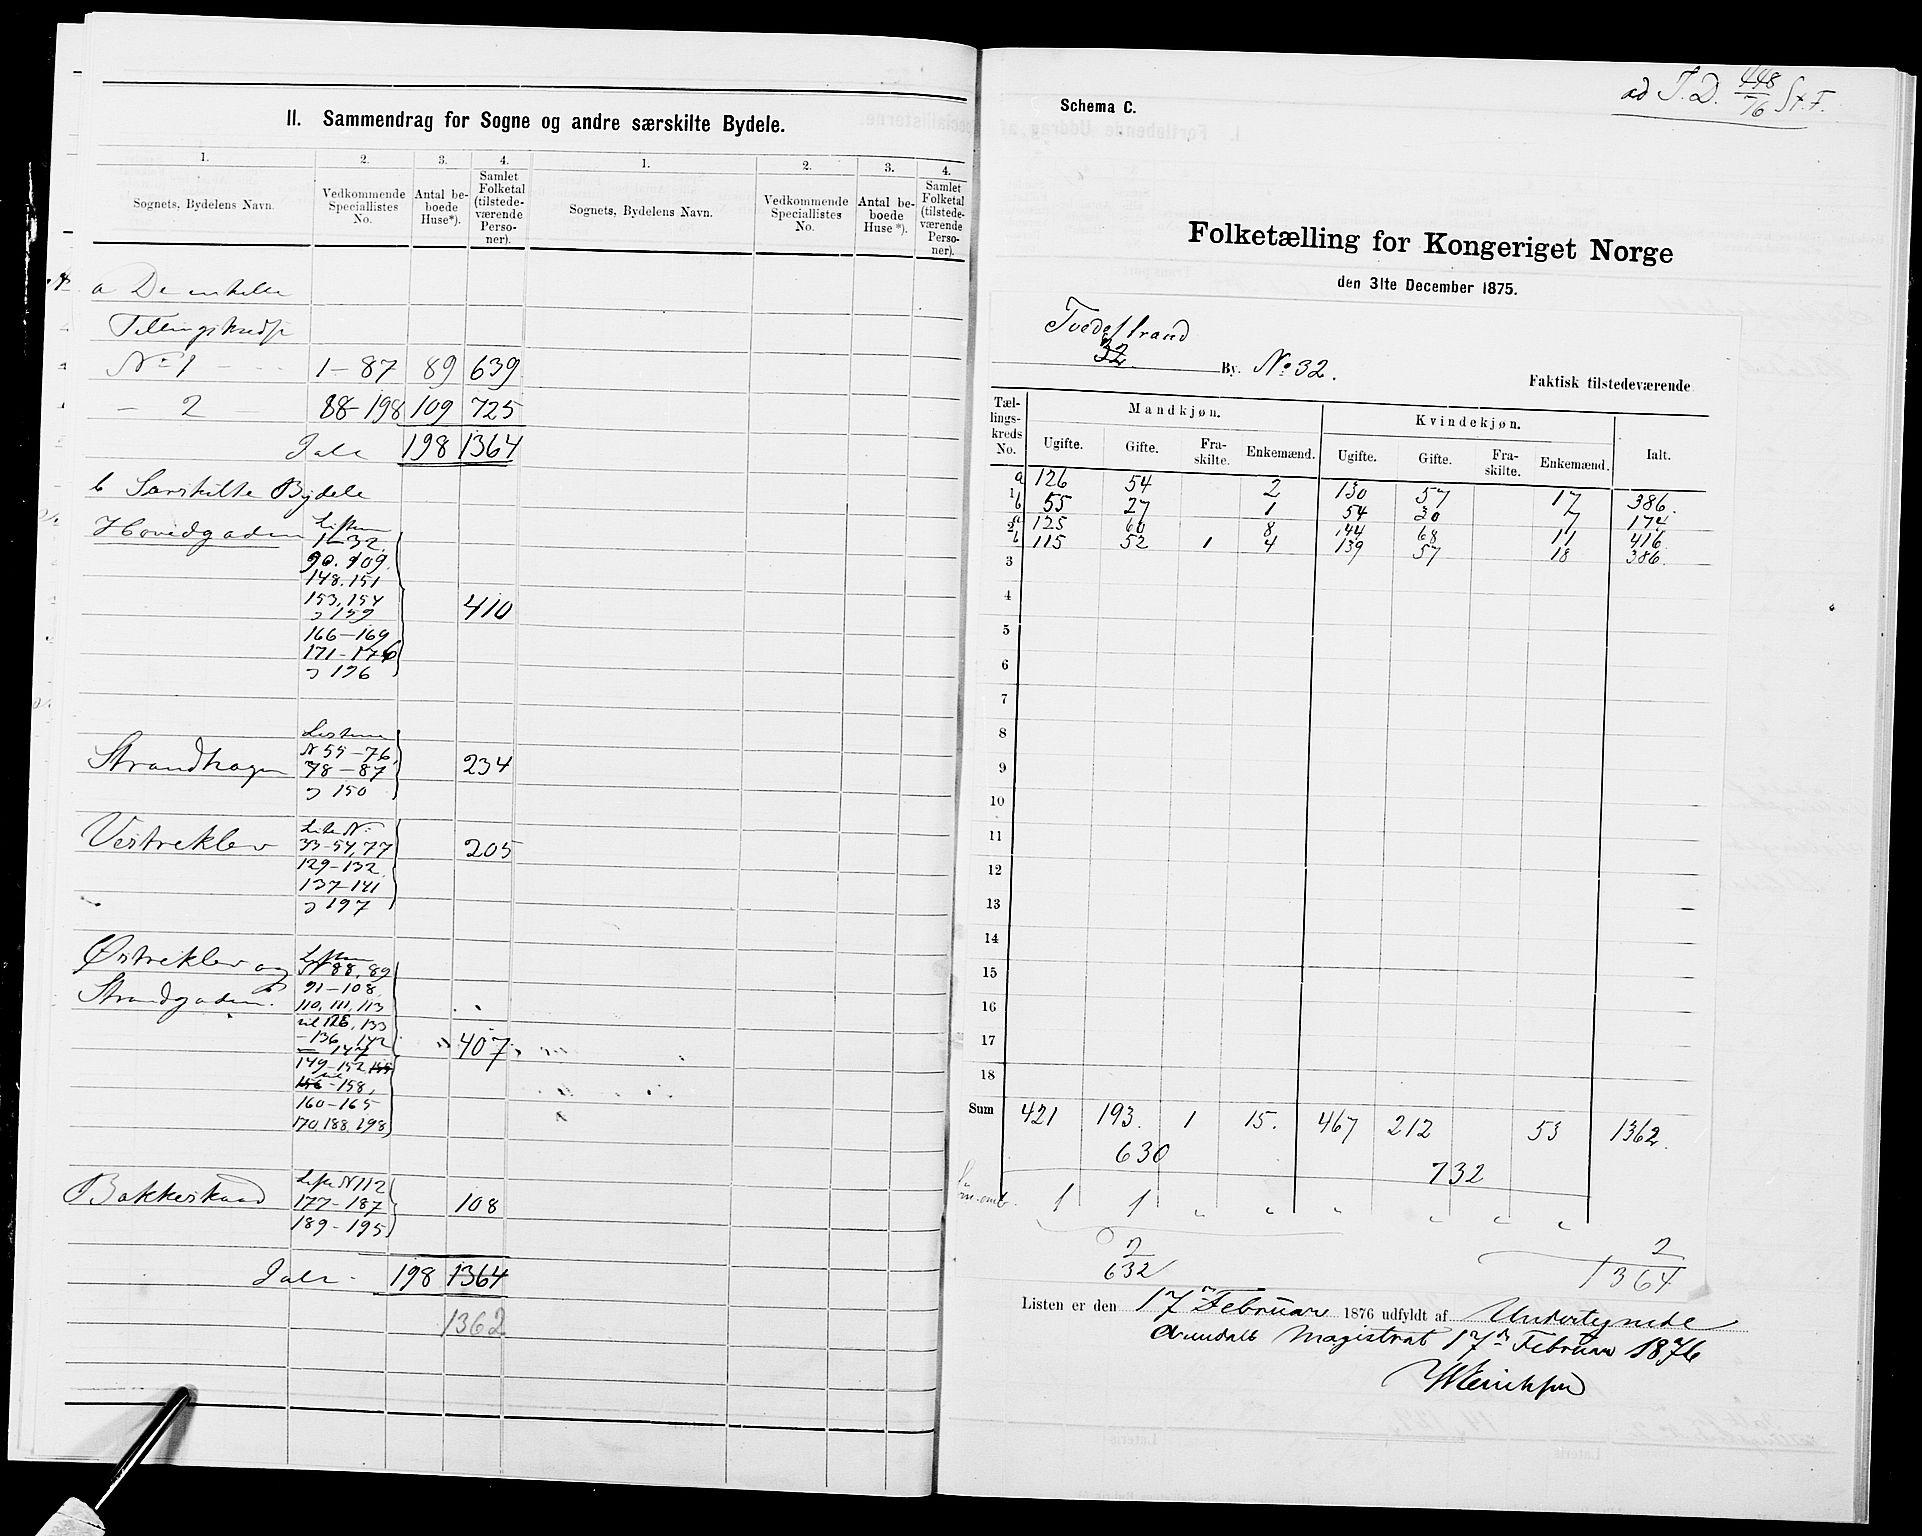 II. Sammendrag for Sogne og andre særskilte Bydele.
1. 2. 3. 4. 1. 2. 3. 4.
Sognets, Bydelens Navn. Vedkommende Speciallistes No. Antal beboede Huse*). Samlet Folketal (tilstedeværende Personer). Sognets, Bydelens Navn. Vedkommende Speciallistes No. Antal beboede Huse*). Samlet Folketal (tilstedeværende Personer).
a De enkelte
Tellingskredse
No 1 - - - 1-87 89 639
- 2 - 88-198 109 725
Ialt 198 1364
b Særskilte Bydele
Hovedgaden Listerne
1-32
90. 109.
148. 151
153, 154
159 410
166-169
171-176
196
Strandhagen Listerne
N 55-76,
78-87 234
150
Vestreklev Liste No
33-54, 77 205
129-132
137-141
197
Østreklev og N 88, 89
Strandgaden. 91-108
110, 111, 113
til 128, 133
-136, 142
-147 407
149-152, 155
156-158,
160-165
170, 188, 198
Bakkeskaad Liste N 112
177-187 108
189-195
Ialt - 198 1364
1362
ad T. D. 448/76 St. F.
Schema C.
Folketælling for Kongeriget Norge
den 31te December 1875.
Tvedestrand
32
By. No 32.
Faktisk tilstedeværende
Tællingskreds No. Mandkjøn. Kvindekjøn. Ialt.
Ugifte. Gifte. Fraskilte. Enkemænd. Ugifte. Gifte. Fraskilte. Enkemænd.
1 a 126 54 2 130 57 17 386.
b 55 27 1 54 30 7 174
2 a 125 60 8 144 68 11 416
b 115 52 1 4 139 57 18 386.
3
4
5
6
7
8
9
10
11
12
13
14
15
16
17
18
Sum 421 193. 1 15. 467 212 53 1362.
630 732
1 1 " " " " " "
2 2
632 1364
Listen er den 17 Februar 1876 udfyldt af Undertegnede
Arendals Magistrat 17de Februar 1876